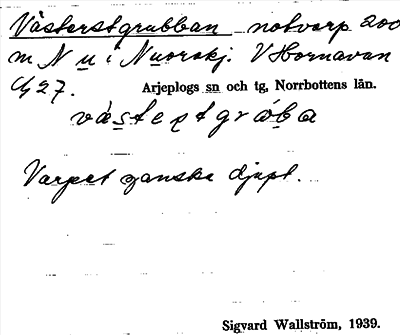 Västerstgrubban notvarp 200
m N u i Nuorskj. V Hornavan
27.
Arjeplogs sn och tg, Norrbottens län.
västeṛstgrúba
Varpet ganska djupt.
Sigvard Wallström, 1939.